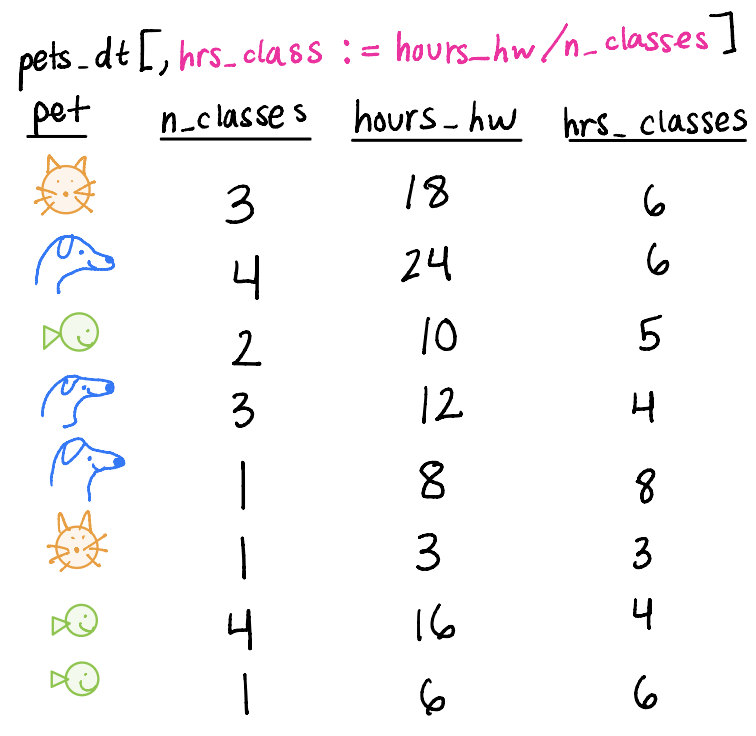 pets_dt[,hrs_class := hours_hw/n_classes]
pet n_classes hours_hw hrs_classes
3 18 6
4 24 6
2 10 5
3 12 4
1 8 8
1 3 3
4 16 4
1 6 6